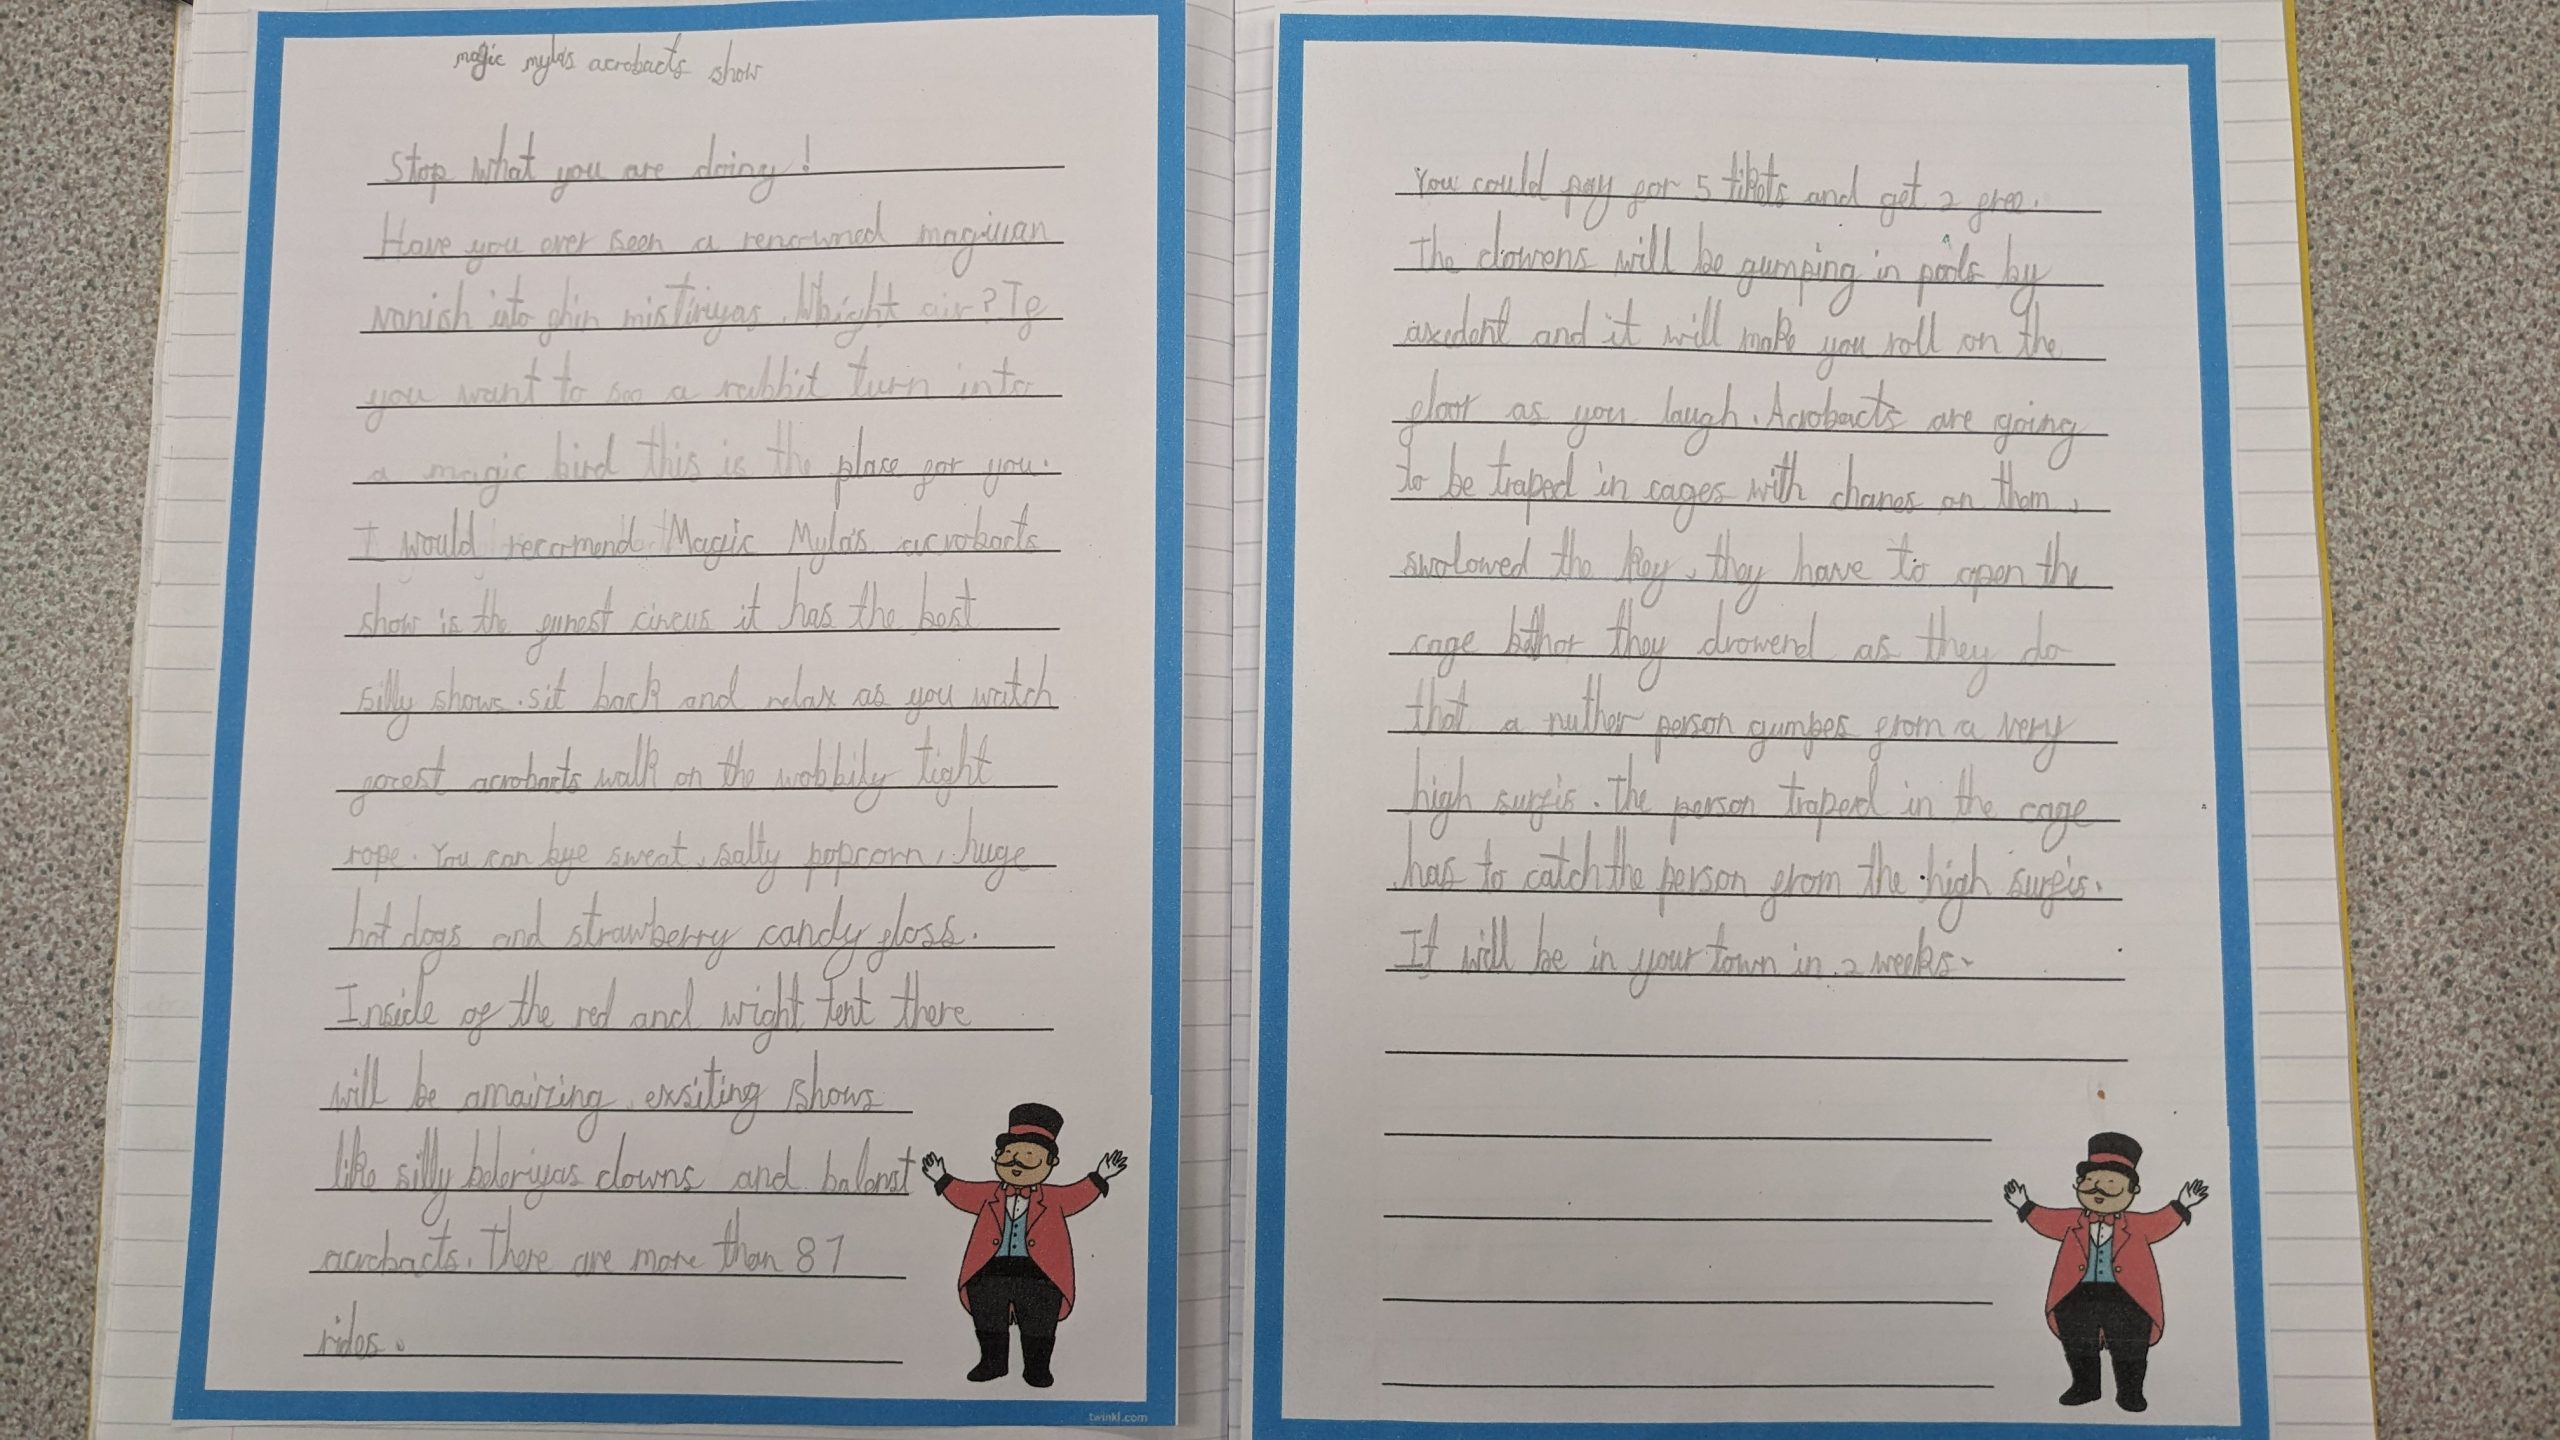 magic myla's acrobacts show
Stop what you are doing!
Have you ever seen a renowned magician
vanish into thin mistiriyas Whight air? If
you want to see a rabbit turn into
a magic bird this is the place for you.
I would recomend Magic Myla's acrobacts
show is the funest circus it has the best
silly shows. sit back and relax as you watch
forest acrobacts walk on the wobbily tight
rope. You can bye sweat, salty popcorn, huge
hot dogs and strawberry candy floss.
Inside of the red and wight tent there
will be amaizing, exsiting shows
like silly beleriyas clowns and balenst
acrobacts. There are more than 87
rides.
twinkl.com
You could pay for 5 tikets and get 2 free.
The clowens will be gumping in pools by
axedent and it will make you roll on the
floor as you laugh. Acrobacts are going
to be traped in cages with chanes on them,
swolowed the key, they have to open the
cage they drowend as they do
that a nuther person gumpes from a very
high surfis. The person traped in the cage
has to catch the person from the high surfis.
It will be in your town in 2 weeks.